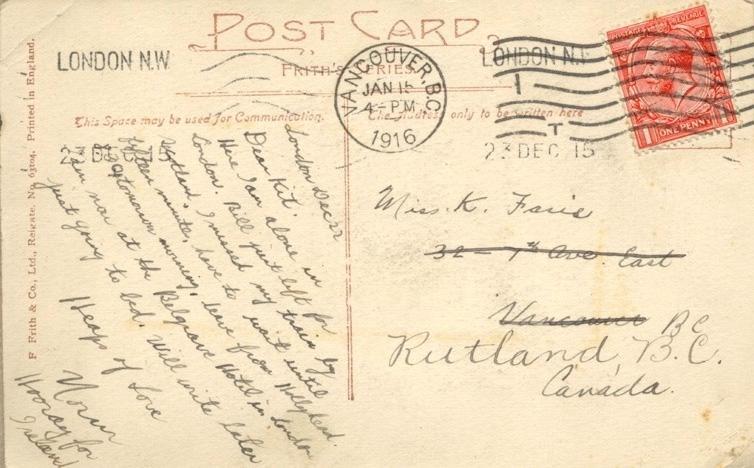 POST CARD
FRITH'S SERIES
LONDON N.W
VANCOUVER, B.C.
JAN 15
4 - PM
1916
LONDON N.
1
T
23 DEC 15
POSTAGE REVENUE
1 ONE PENNY 1
This Space may be used for Communication.
The Address only to be written here
F Frith & Co., Ltd., Reigate. No. 63104. Printed in England.
London Dec 22
Dear Kit.
Here I am alone in
London. Bill just left for
Scotland. I missed my train by
minute, have to wait until
tomorrow morning, leave from Hollyhead.
I am now at the Belgrave Hotel in London
just going to bed. Will write later
Heaps of Love
Norm
Hooray for
Ireland
Miss. K. Faris
32 - 7th Ave. East
Vancouver BC
Rutland B.C.
Canada.